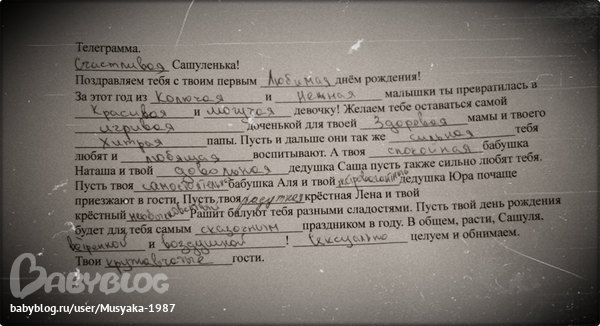 Телеграмма.
Счастливая Сашуленька!
Поздравляем тебя с твоим первым Любимая днём рождения!
За этот год из Колючая и Нежная малышки ты превратилась в
Красивая и могучая девочку! Желаем тебе оставаться самой
игривая доченькой для твоей Здоровая мамы и твоего
Хитрая папы. Пусть и дальше они так же сильная тебя
любят и любящая воспитывают. А твоя спокойная бабушка
Наташа и твой довольная дедушка Саша пусть также сильно любят тебя.
Пусть твоя бабушка Аля и твой дедушка Юра почаще
приезжают в гости. Пусть твоя крёстная Лена и твой
крёстный Рашит балуют тебя разными сладостями. Пусть твой день рождения
будет для тебя самым сказочным праздником в году. В общем, расти, Сашуля,
и воздушной ! Сексуально целуем и обнимаем.
Твои кружевчатые гости.
BABYBLOG
babyblog.ru/user/Musyaka-1987